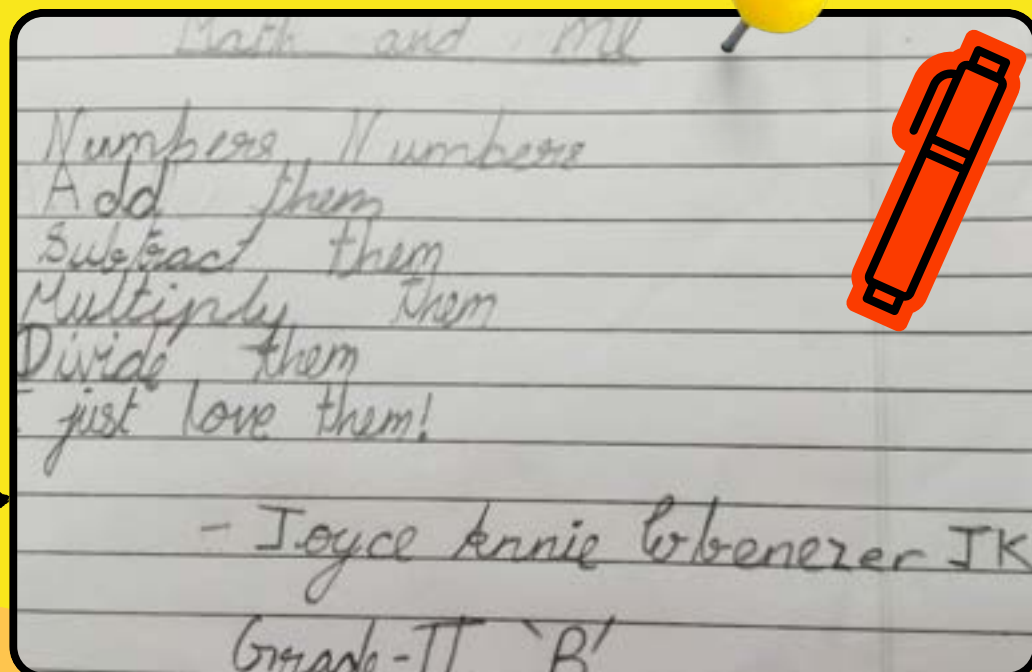 Math and Me
Numbers Numbers
Add them
Subtract them
Multiply them
Divide them
I just love them!
- Joyce Annie Ebenezer JK
Grade-II 'B'